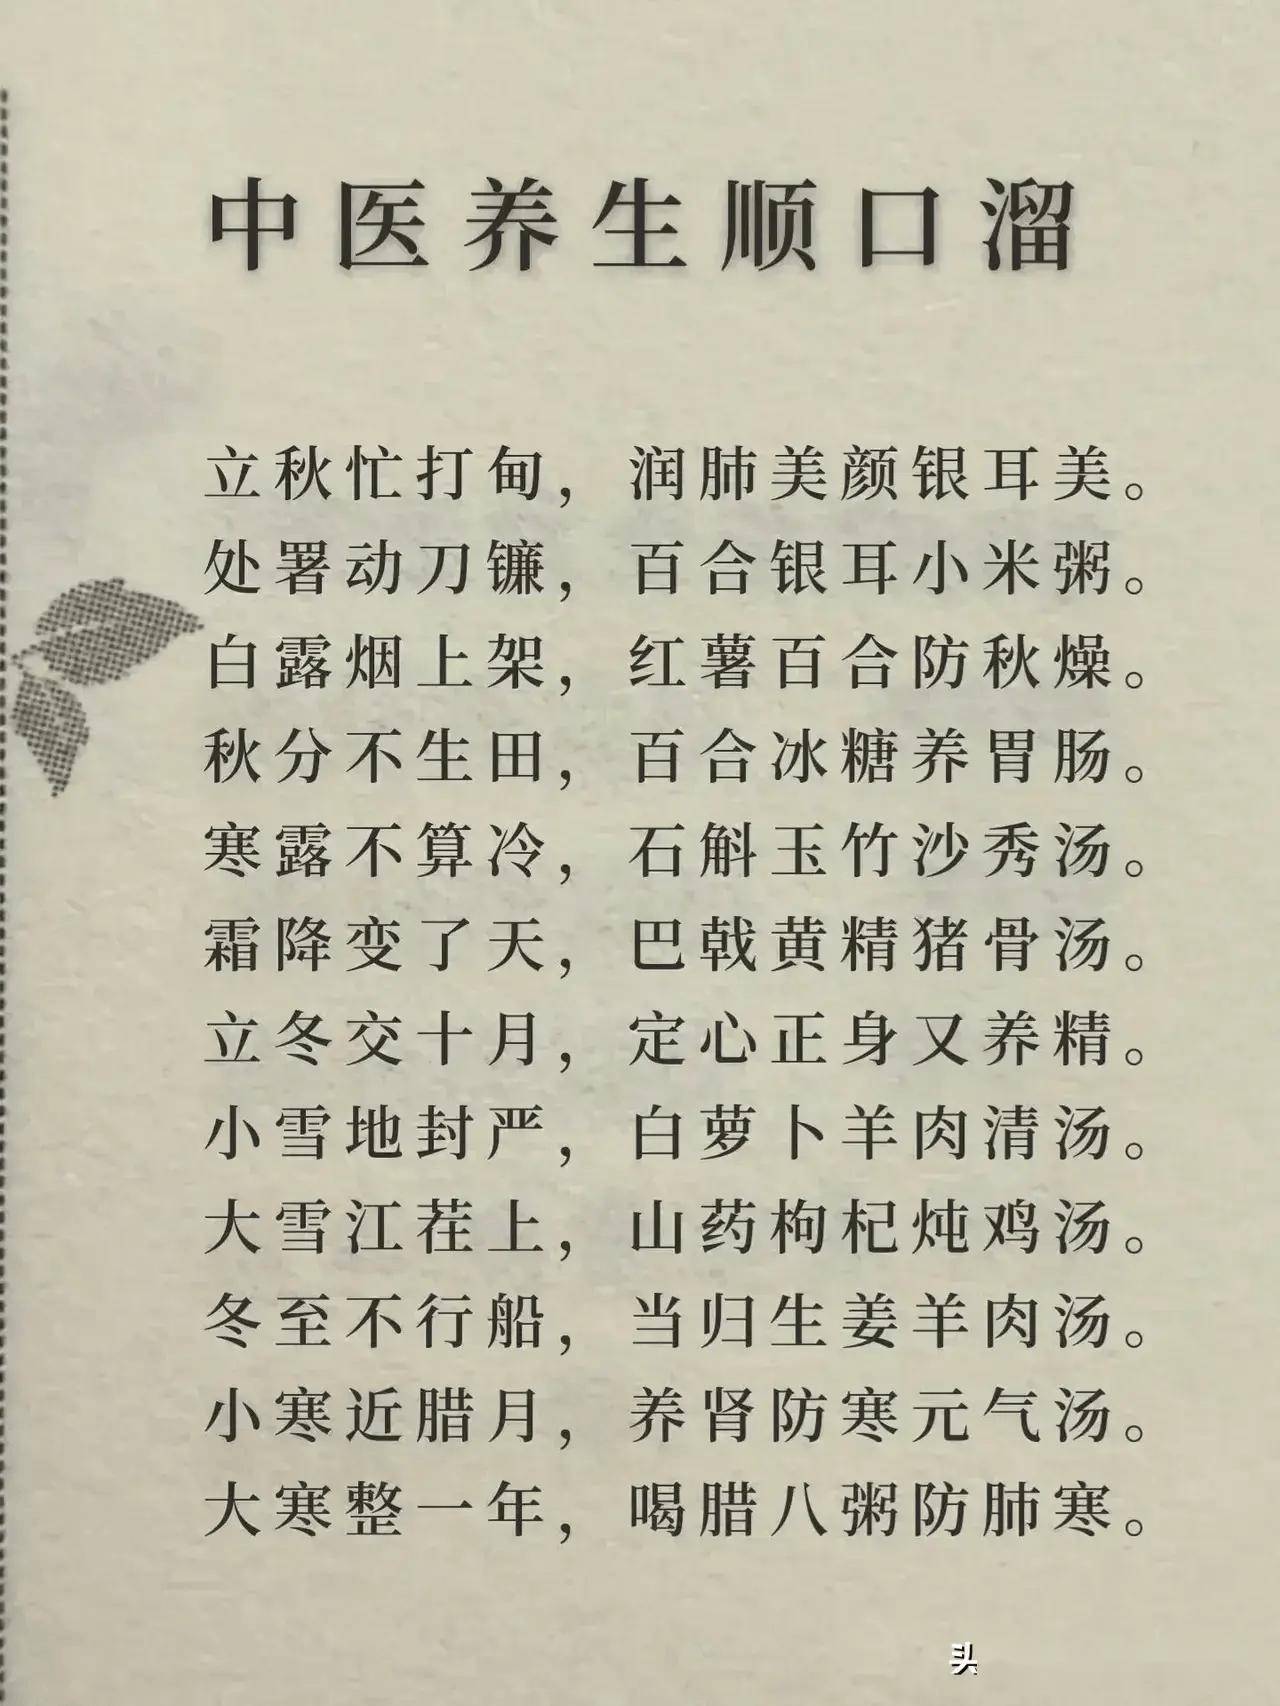 中医养生顺口溜
立秋忙打甸，润肺美颜银耳美。
处署动刀镰，百合银耳小米粥。
白露烟上架，红薯百合防秋燥。
秋分不生田，百合冰糖养胃肠。
寒露不算冷，石斛玉竹沙秀汤。
霜降变了天，巴戟黄精猪骨汤。
立冬交十月，定心正身又养精。
小雪地封严，白萝卜羊肉清汤。
大雪江茬上，山药枸杞炖鸡汤。
冬至不行船，当归生姜羊肉汤。
小寒近腊月，养肾防寒元气汤。
大寒整一年，喝腊八粥防肺寒。
头